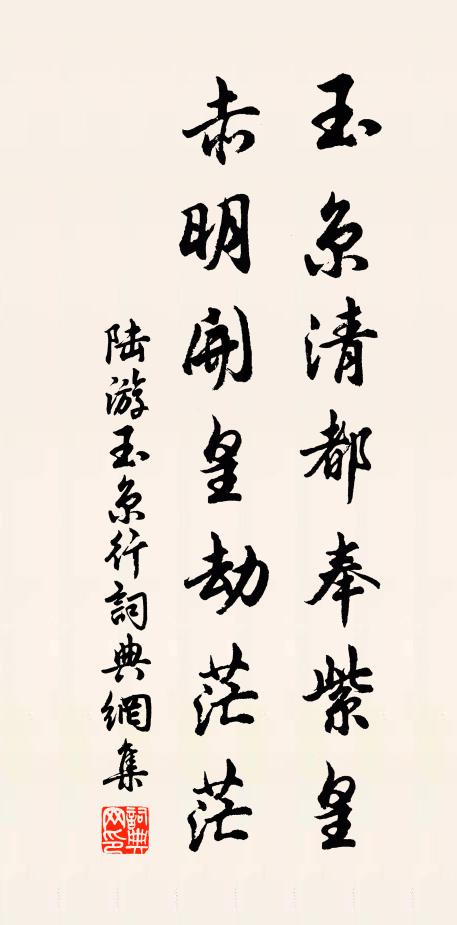 玉京清都奉紫皇
赤明開皇劫茫茫
陆游玉京行詞典網集
詞典网印